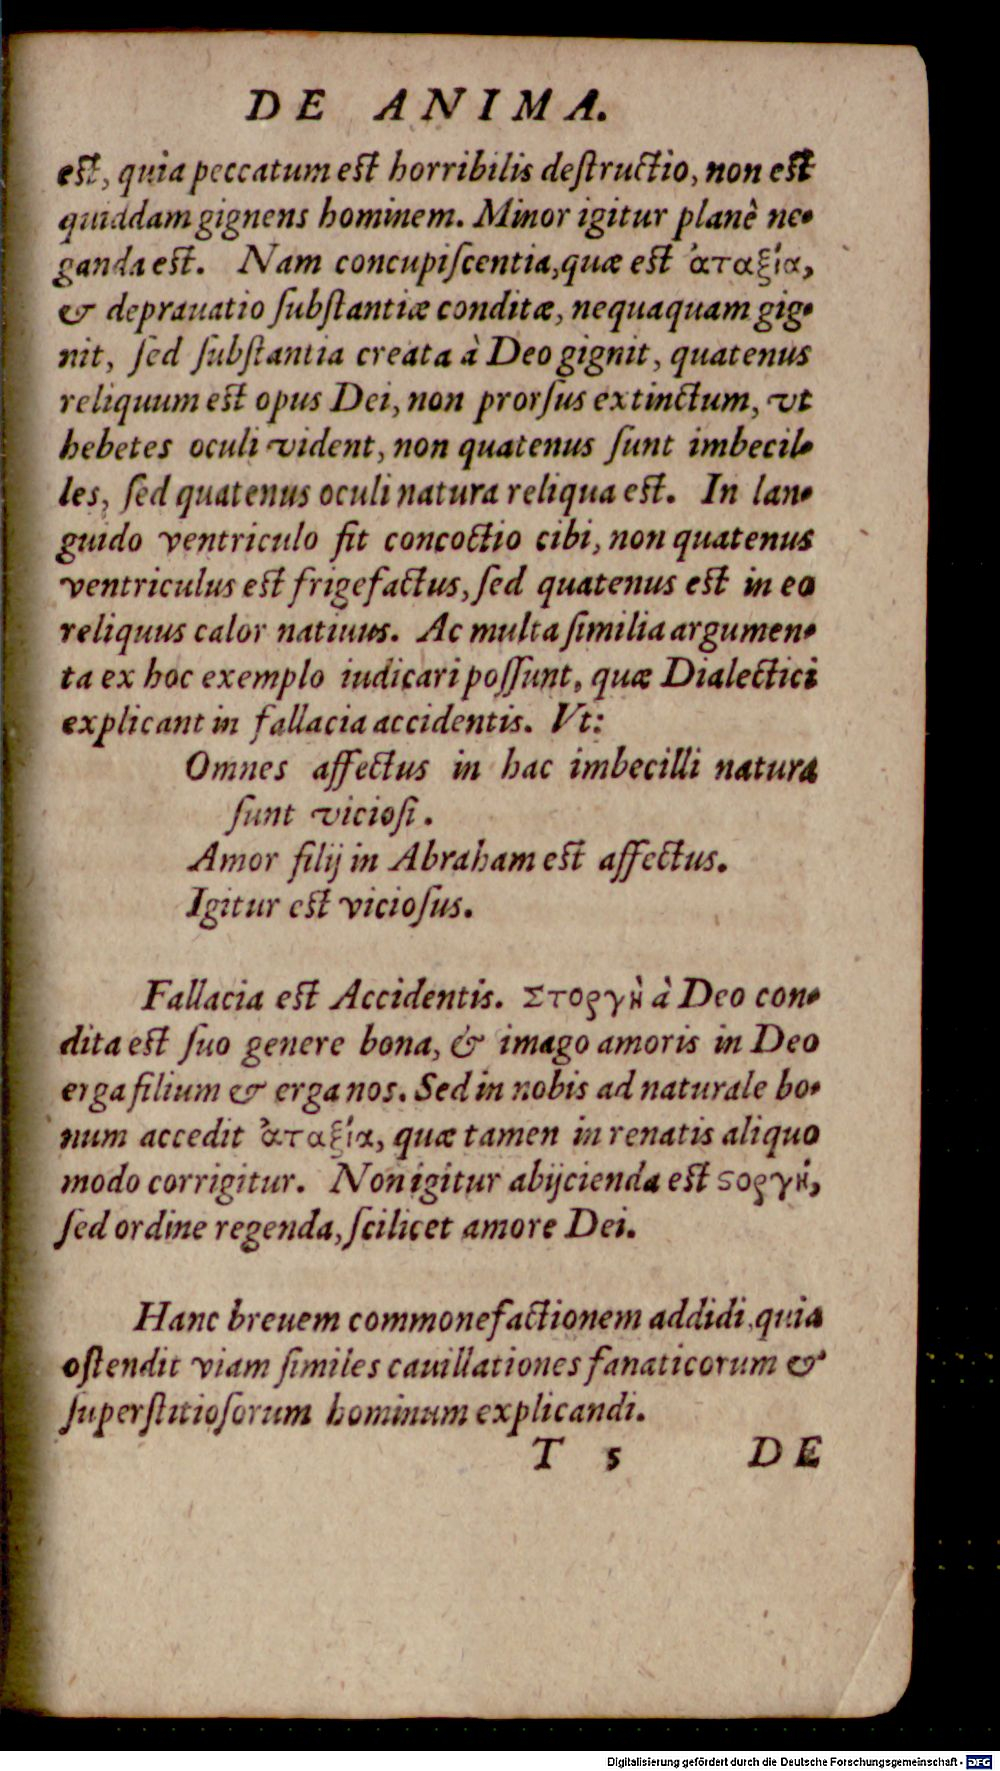 DE ANIMA.
est, quia peccatum est horribilis deſtructio, non est
quiddam gignens hominem. Minor igitur planè ne-
ganda est. Nam concupiſcentia, quæ est ἀταξία,
& deprauatio ſubſtantiæ conditæ, nequaquam gig-
nit, ſed ſubſtantia creata à Deo gignit, quatenus
reliquum est opus Dei, non prorſus extinctum, vt
hebetes oculi vident, non quatenus ſunt imbecil-
les, ſed quatenus oculi natura reliqua est. In lan-
guido ventriculo fit concoctio cibi, non quatenus
ventriculus est frigefactus, ſed quatenus est in eo
reliquus calor natiuus. Ac multa ſimilia argumen-
ta ex hoc exemplo iudicari poſſunt, quæ Dialectici
explicant in fallacia accidentis. Vt:
Omnes affectus in hac imbecilli natura
ſunt vicioſi.
Amor filij in Abraham est affectus.
Igitur est vicioſus.
Fallacia est Accidentis. Στοργὴ à Deo con-
dita est ſuo genere bona, & imago amoris in Deo
erga filium & erga nos. Sed in nobis ad naturale bo-
num accedit ἀταξία, quæ tamen in renatis aliquo
modo corrigitur. Non igitur abijcienda est ϛοργή,
ſed ordine regenda, ſcilicet amore Dei.
Hanc breuem commonefactionem addidi, quia
oſtendit viam ſimiles cauillationes fanaticorum &
ſuperſtitioſorum hominum explicandi.
T 5 DE
Digitalisierung gefördert durch die Deutsche Forschungsgemeinschaft - DFG